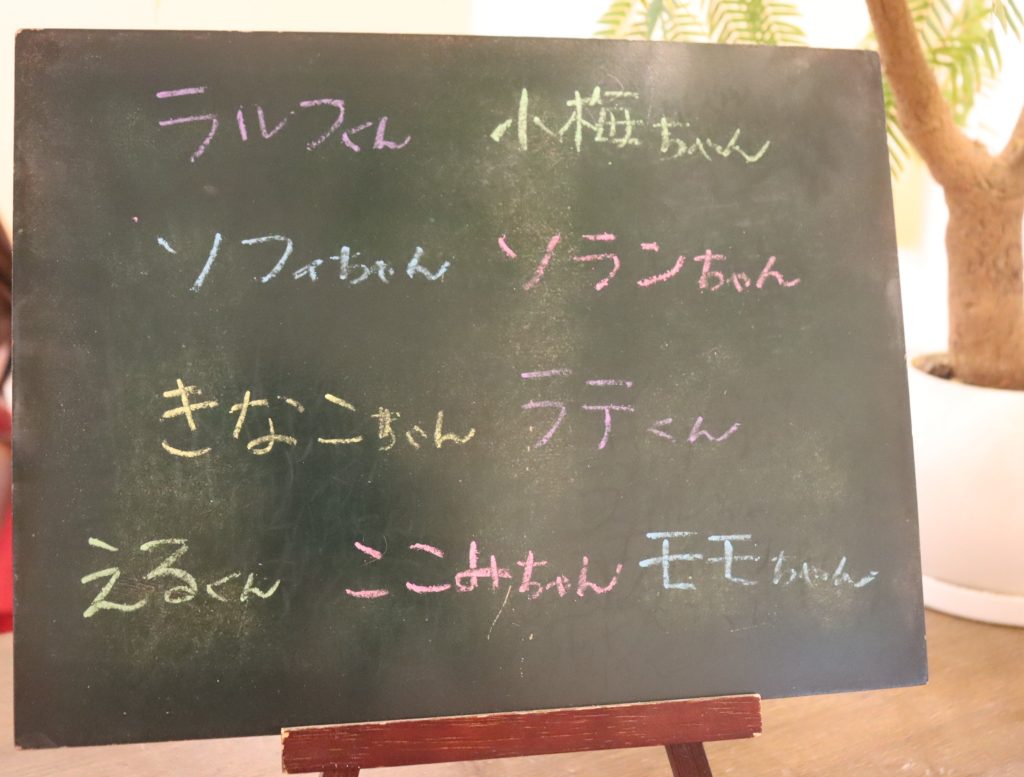 ラルフくん 小梅ちゃん
ソフィちゃん ソランちゃん
きなこちゃん ラテくん
えるくん ここみちゃん モモちゃん